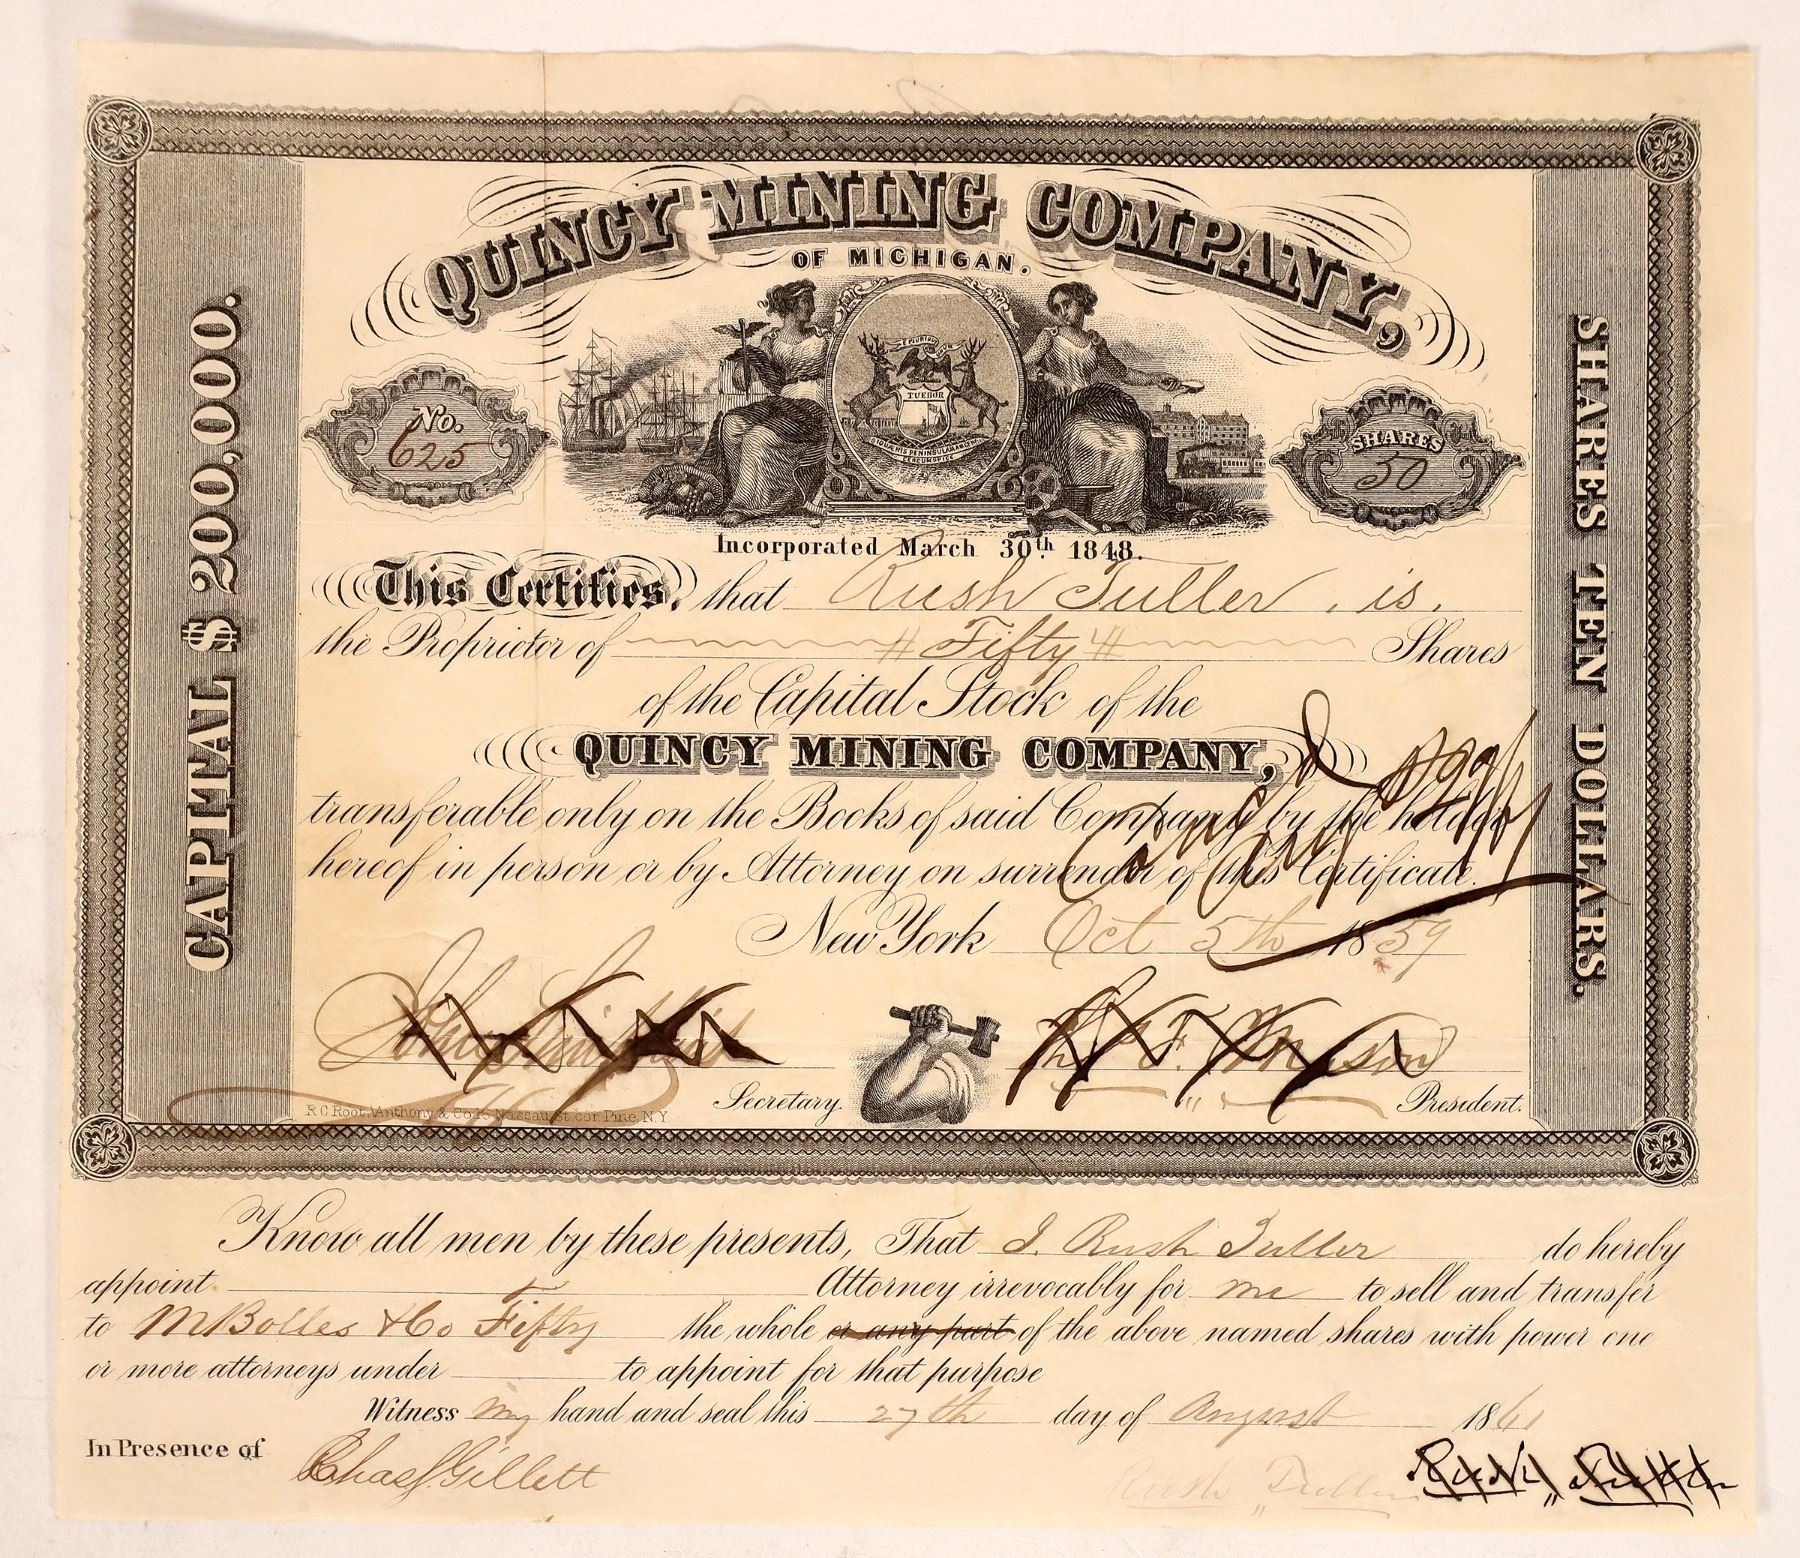 QUINCY MINING COMPANY,
OF MICHIGAN.
CAPITAL $ 200,000.
SHARES TEN DOLLARS.
No.
625
SHARES
50
TUEBOR
Incorporated March 30th. 1848.
This Certifies, that Rush Fuller, is,
the Proprietor of Fifty Shares
of the Capital Stock of the
QUINCY MINING COMPANY,
transferable only on the Books of said Company by the holder
hereof in person or by Attorney on surrender of this Certificate.
New York Oct 5th 1859
Thos F. Mason
Secretary.
President.
R C Root, Anthony & Co 16 Nassau St cor Pine, N.Y.
Know all men by these presents, That I. Rush Fuller do hereby
appoint Attorney irrevocably for me to sell and transfer
to M Bolles & Co Fifty the whole or any part of the above named shares with power one
or more attorneys under to appoint for that purpose
Witness my hand and seal this 27th day of August 1861
In Presence of Chas J. Gillett
Rush Fuller